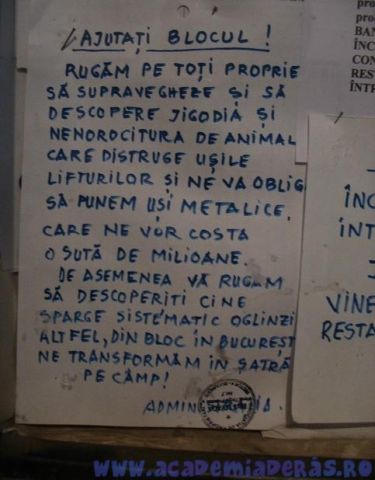 AJUTAȚI BLOCUL!
RUGĂM PE TOȚI PROPRIE
SĂ SUPRAVEGHEZE ȘI SĂ
DESCOPERE JIGODIA ȘI
NENOROCITURA DE ANIMAL
CARE DISTRUGE UȘILE
LIFTURILOR ȘI NE VA OBLIG
SĂ PUNEM UȘI METALICE,
CARE NE VOR COSTA
O SUTĂ DE MILIOANE.
DE ASEMENEA VĂ RUGĂM
SĂ DESCOPERIȚI CINE
SPARGE SISTEMATIC OGLINZI
ALTFEL, DIN BLOC ÎN BUCUREȘT
NE TRANSFORMĂM ÎN ȘATRĂ
PE CÂMP!
pro
BAN
ÎNC
CON
REST
ÎNTR
ÎNC
ÎNT
VINE
RESTA
www.academiaderâs.ro